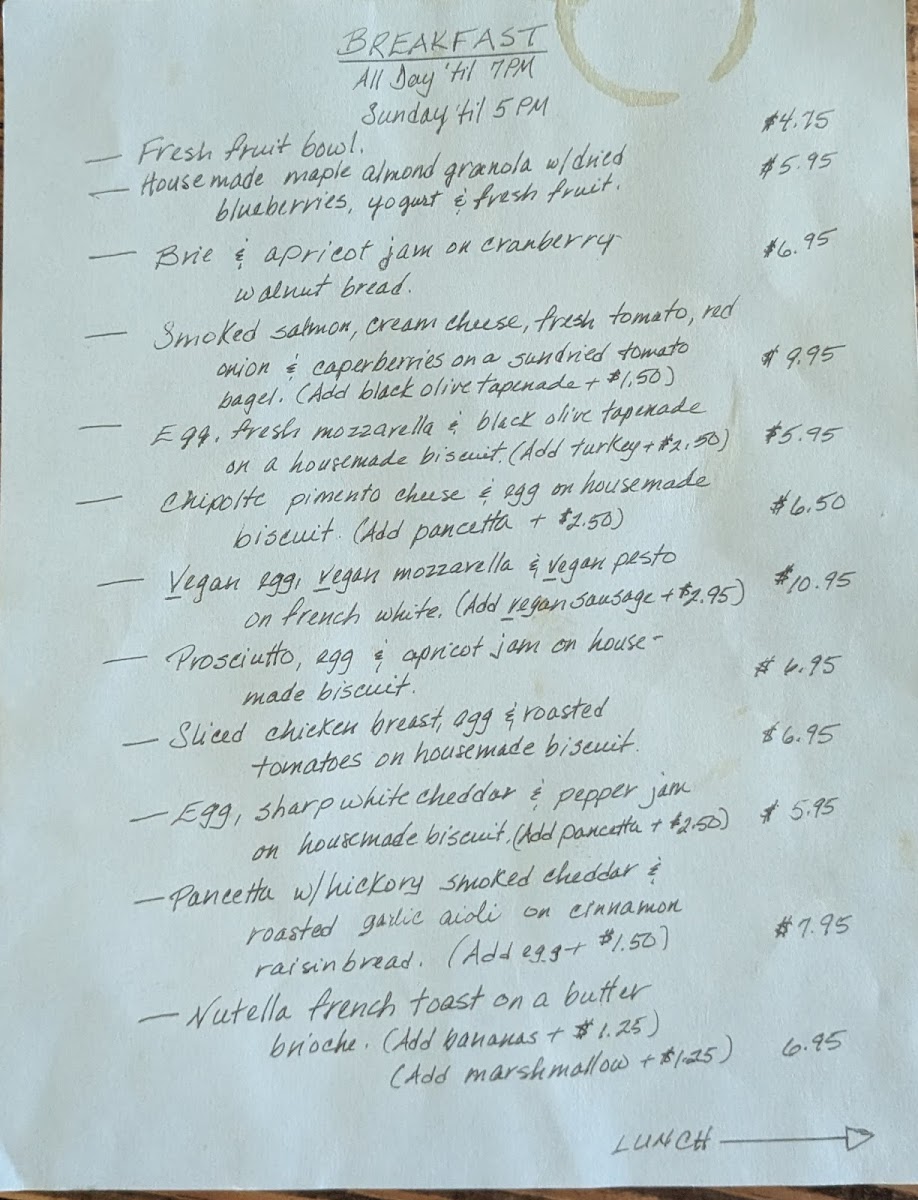 BREAKFAST
All Day 'til 7PM
Sunday 'til 5 PM
— Fresh fruit bowl. $4.75
— Housemade maple almond granola w/dried $5.95
blueberries, yogurt & fresh fruit.
— Brie & apricot jam on cranberry $6.95
walnut bread.
— Smoked salmon, cream cheese, fresh tomato, red
onion & caperberries on a sundried tomato $9.95
bagel. (Add black olive tapenade + $1.50)
— Egg, fresh mozzarella & black olive tapenade
on a housemade biscuit. (Add turkey + $2.50) $5.95
— Chipolte pimento cheese & egg on housemade $6.50
biscuit. (Add pancetta + $2.50)
— Vegan egg, vegan mozzarella & vegan pesto
on french white. (Add vegan sausage + $2.95) $10.95
— Prosciutto, egg & apricot jam on house-
made biscuit. $6.95
— Sliced chicken breast, egg & roasted
tomatoes on housemade biscuit. $6.95
— Egg, sharp white cheddar & pepper jam
on housemade biscuit. (Add pancetta + $2.50) $5.95
— Pancetta w/hickory smoked cheddar &
roasted garlic aioli on cinnamon $7.95
raisin bread. (Add egg + $1.50)
— Nutella french toast on a butter
brioche. (Add bananas + $1.25)
(Add marshmallow + $1.25) 6.95
LUNCH →